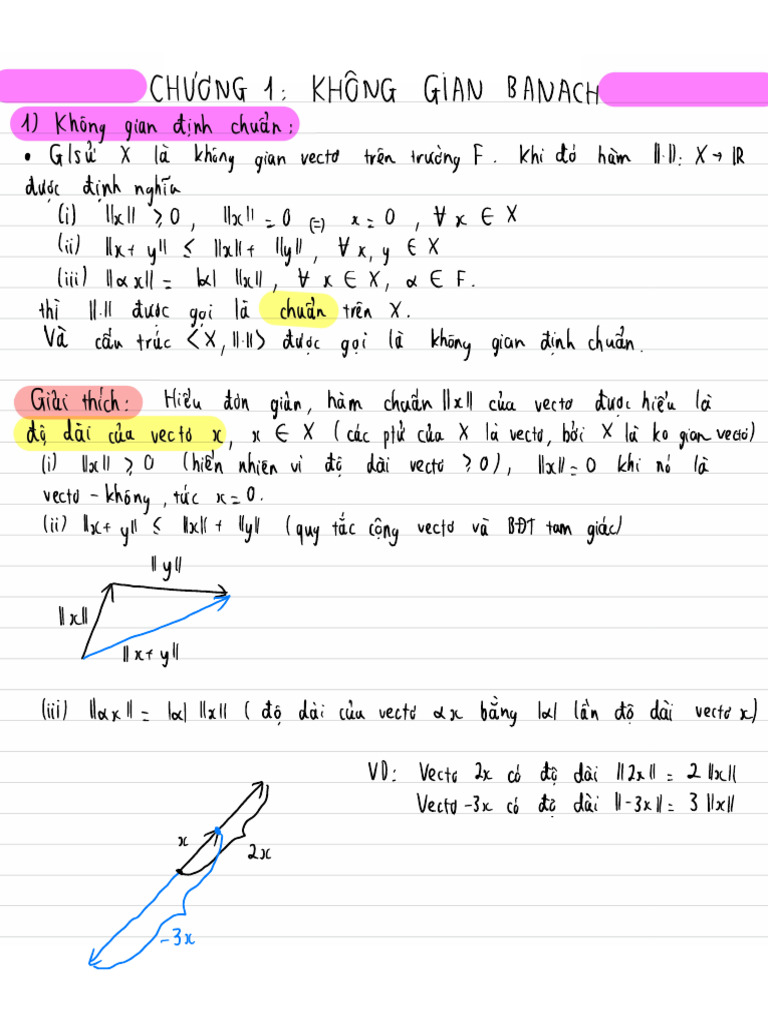 CHƯƠNG 1: KHÔNG GIAN BANACH
1) Không gian định chuẩn:
• G/sử X là không gian vectơ trên trường F. Khi đó hàm ||.||: X → IR
được định nghĩa
(i) ||x|| ≥ 0, ||x|| = 0 (=) x = 0, ∀ x ∈ X
(ii) ||x + y|| ≤ ||x|| + ||y||, ∀ x, y ∈ X
(iii) ||αx|| = |α| ||x||, ∀ x ∈ X, α ∈ F.
thì ||.|| được gọi là chuẩn trên X.
Và cấu trúc <X, ||.||> được gọi là không gian định chuẩn.
Giải thích: Hiểu đơn giản, hàm chuẩn ||x|| của vectơ được hiểu là
độ dài của vectơ x, x ∈ X (các ptử của X là vectơ, bởi X là ko gian vectơ)
(i) ||x|| ≥ 0 (hiển nhiên vì độ dài vectơ ≥ 0), ||x|| = 0 khi nó là
vectơ - không, tức x = 0.
(ii) ||x + y|| ≤ ||x|| + ||y|| (quy tắc cộng vectơ và BĐT tam giác)
||y||
||x||
||x + y||
(iii) ||αx|| = |α| ||x|| (độ dài của vectơ αx bằng |α| lần độ dài vectơ x)
VD: Vectơ 2x có độ dài ||2x|| = 2 ||x||
Vectơ -3x có độ dài ||-3x|| = 3 ||x||
x
2x
-3x